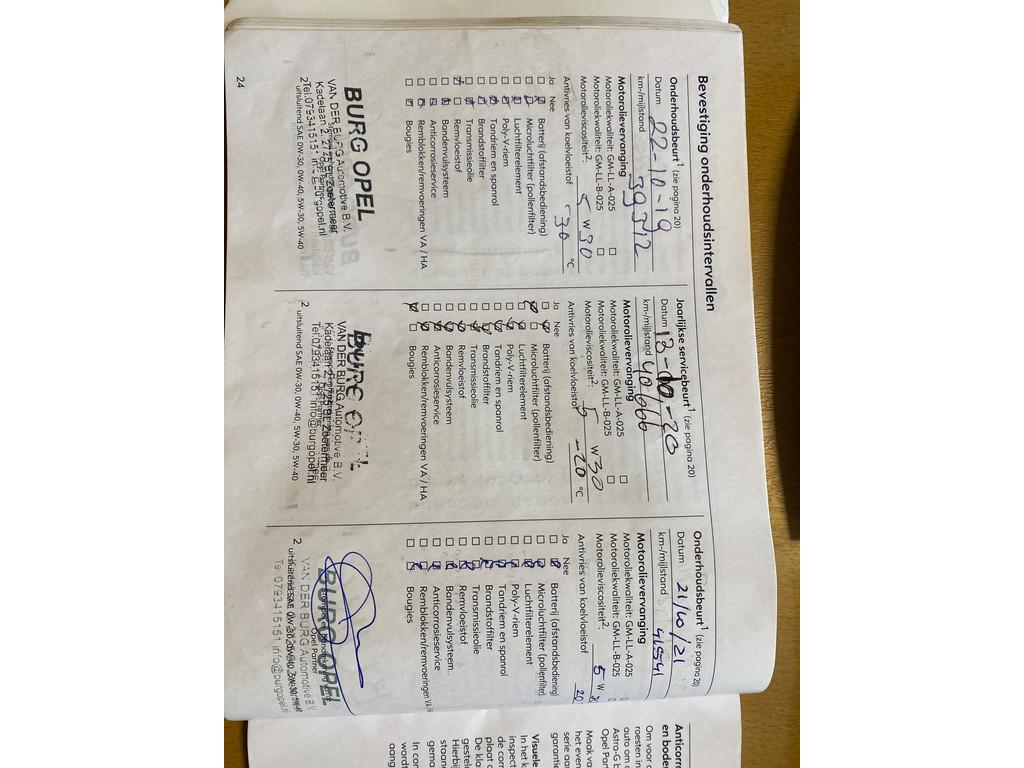 Bevestiging onderhoudsintervallen
Onderhoudsbeurt¹ (zie pagina 20)
Datum 22-10-19
km-/mijlstand 39312
Motorolievervanging
Motoroliekwaliteit: GM-LL-A-025
Motoroliekwaliteit: GM-LL-B-025
Motorolieviscositeit²: 5 W 30
Antivries van koelvloeistof -30 °C
Ja Nee
Batterij (afstandsbediening)
Microluchtfilter (pollenfilter)
Luchtfilterelement
Poly-V-riem
Tandriem en spanrol
Brandstoffilter
Transmissieolie
Remvloeistof
Bandenvulsysteem
Anticorrosieservice
Remblokken/remvoeringen VA / HA
Bougies
BURG OPEL
VAN DER BURG Automotive B.V.
Kadelaan 2,
Zoetermeer
Tel.0793415151
2 uitsluitend SAE 0W-30, 0W-40, 5W-30, 5W-40
24
Jaarlijkse servicebeurt¹ (zie pagina 20)
Datum 13- -20
km-/mijlstand 40
Motorolievervanging
Motoroliekwaliteit: GM-LL-A-025
Motoroliekwaliteit: GM-LL-B-025
Motorolieviscositeit²: 5 W 30
Antivries van koelvloeistof -20 °C
Ja Nee
Batterij (afstandsbediening)
Microluchtfilter (pollenfilter)
Luchtfilterelement
Poly-V-riem
Tandriem en spanrol
Brandstoffilter
Transmissieolie
Remvloeistof
Bandenvulsysteem
Anticorrosieservice
Remblokken/remvoeringen VA / HA
Bougies
VAN DER BURG Automotive B.V.
Zoetermeer
Tel.0793415151 info@burgopel.nl
2 uitsluitend SAE 0W-30, 0W-40, 5W-30, 5W-40
Onderhoudsbeurt¹ (zie pagina 20)
Datum 21/10/21
km-/mijlstand 41541
Motorolievervanging
Motoroliekwaliteit: GM-LL-A-025
Motoroliekwaliteit: GM-LL-B-025
Motorolieviscositeit²: 5 W
Antivries van koelvloeistof 20
Ja Nee
Batterij (afstandsbediening)
Microluchtfilter (pollenfilter)
Luchtfilterelement
Poly-V-riem
Tandriem en spanrol
Brandstoffilter
Transmissieolie
Remvloeistof
Bandenvulsysteem
Anticorrosieservice
Remblokken/remvoeringen VA
Bougies
BURG OPEL
Opel Partner
VAN DER BURG Automotive B.V.
Tel.0793415151 info@burgopel.nl
2 uitsluitend SAE 0W-30, 0W-40, 5W-30, 5W-40
Anticorro
en boden
Om voor d
roesten in
auto om d
Astra-G b
Opel Par
Maak va
het even
serie aa
garantie
Visuele
In het k
inspect
de corr
plaat o
De kla
gestel
Hierbij
staan
gema
In con
word
aang